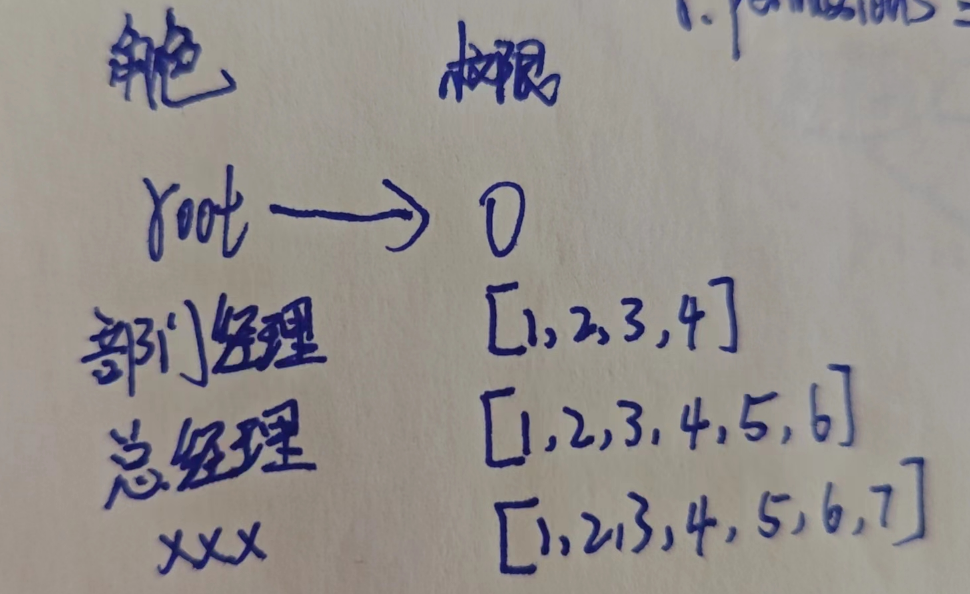 r.permissions =
角色 权限
root → 0
部门经理 [1,2,3,4]
总经理 [1,2,3,4,5,6]
xxx [1,2,3,4,5,6,7]